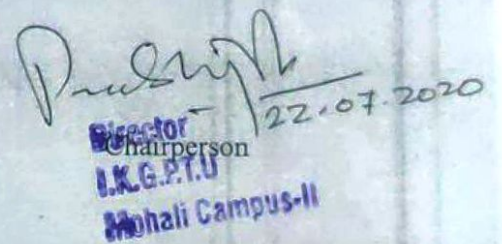 22.07.2020
Director
Chairperson
I.K.G.P.T.U
Mohali Campus-II